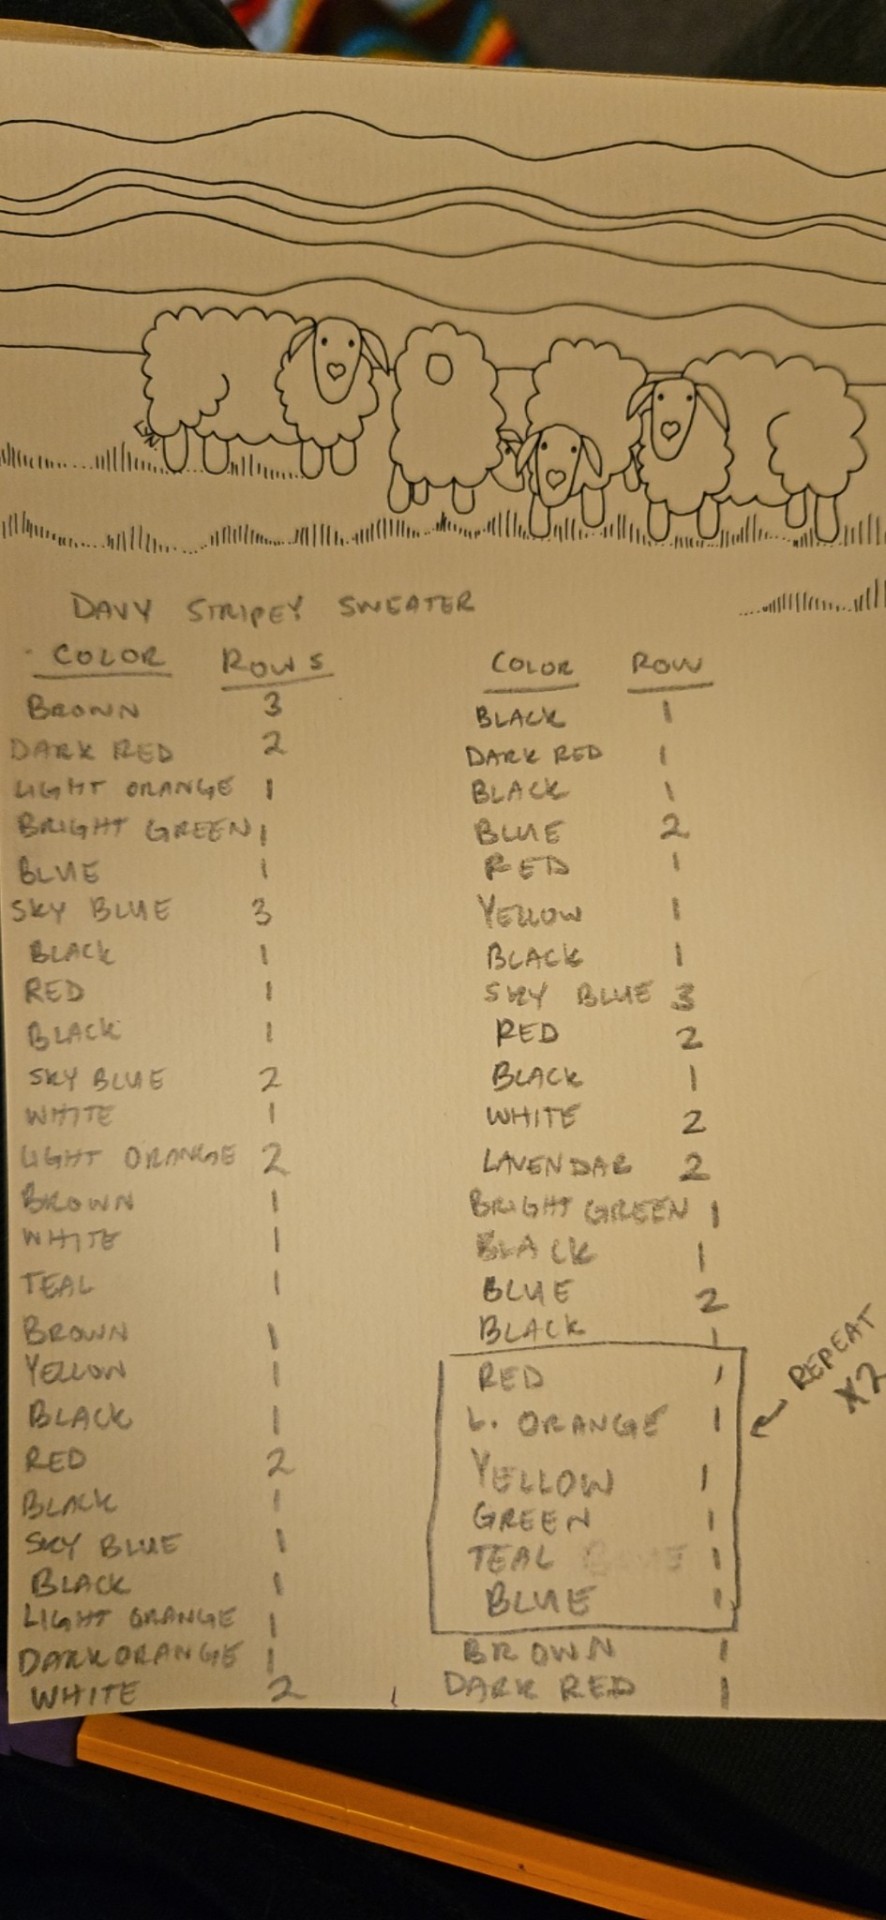 DAVY STRIPEY SWEATER
COLOR ROWS
BROWN 3
DARK RED 2
LIGHT ORANGE 1
BRIGHT GREEN 1
BLUE 1
SKY BLUE 3
BLACK 1
RED 1
BLACK 1
SKY BLUE 2
WHITE 1
LIGHT ORANGE 2
BROWN 1
WHITE 1
TEAL 1
BROWN 1
YELLOW 1
BLACK 1
RED 2
BLACK 1
SKY BLUE 1
BLACK 1
LIGHT ORANGE 1
DARK ORANGE 1
WHITE 2
COLOR ROW
BLACK 1
DARK RED 1
BLACK 1
BLUE 2
RED 1
YELLOW 1
BLACK 1
SKY BLUE 3
RED 2
BLACK 1
WHITE 2
LAVENDAR 2
BRIGHT GREEN 1
BLACK 1
BLUE 2
BLACK 1
RED 1
L. ORANGE 1
YELLOW 1
GREEN 1
TEAL 1
BLUE 1
REPEAT
X2
BROWN 1
DARK RED 1